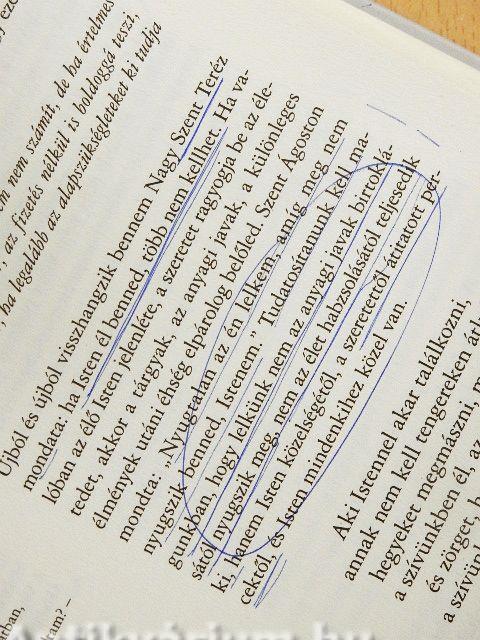 em nem számít, de ha értelmes
az fizetés nélkül is boldoggá teszi,
ha legalább az alapszükségleteket ki tudja
Újból és újból visszhangzik bennem Nagy Szent Teréz
mondata: ha Isten él benned, több nem kelllet. Ha va-
lóban az élő Isten jelenléte, a szeretet ragyogja be az éle-
tedet, akkor a tárgyak, az anyagi javak, a különleges
élmények utáni éhség elpárolog belőled. Szent Ágoston
mondta: „Nyugtalan az én lelkem, amíg meg nem
nyugszik benned, Istenem.” Tudatosítanunk kell ma-
gunkban, hogy lelkünk nem az anyagi javak birtoklá-
sáról nyugszik meg, nem az élet habzsolásától teljesedik
ki, hanem Isten közelségétől, a szeretettől átitatott per-
cektől, és Isten mindenkihez közel van.
Aki Istennel akar találkozni,
annak nem kell tengereken átl
hegyeket megmászni, m
a szívünkben él, az
és zörget, h
a szívün
tban,
tam? –
Antikvárium.hu